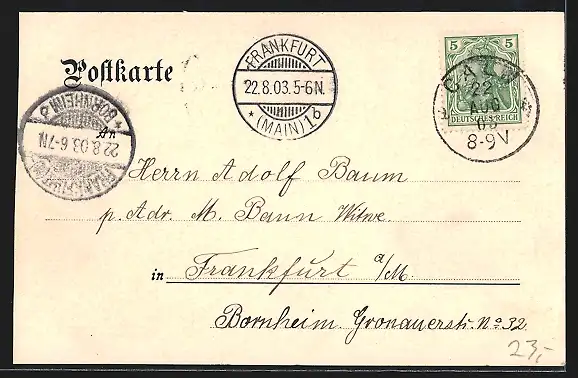 Postkarte
FRANKFURT
22.8.03.5-6N.
* (MAIN) 1 b
5 5
DEUTSCHES REICH
22
AUG
03
8-9V
* BORNHEIM *
22.8.03.6-7N.
An
Herrn Adolf Baum
p. Adr. M. Baun Witwe
in Frankfurt a/M.
Bornheim Gronauerstr. No 32.
23,-